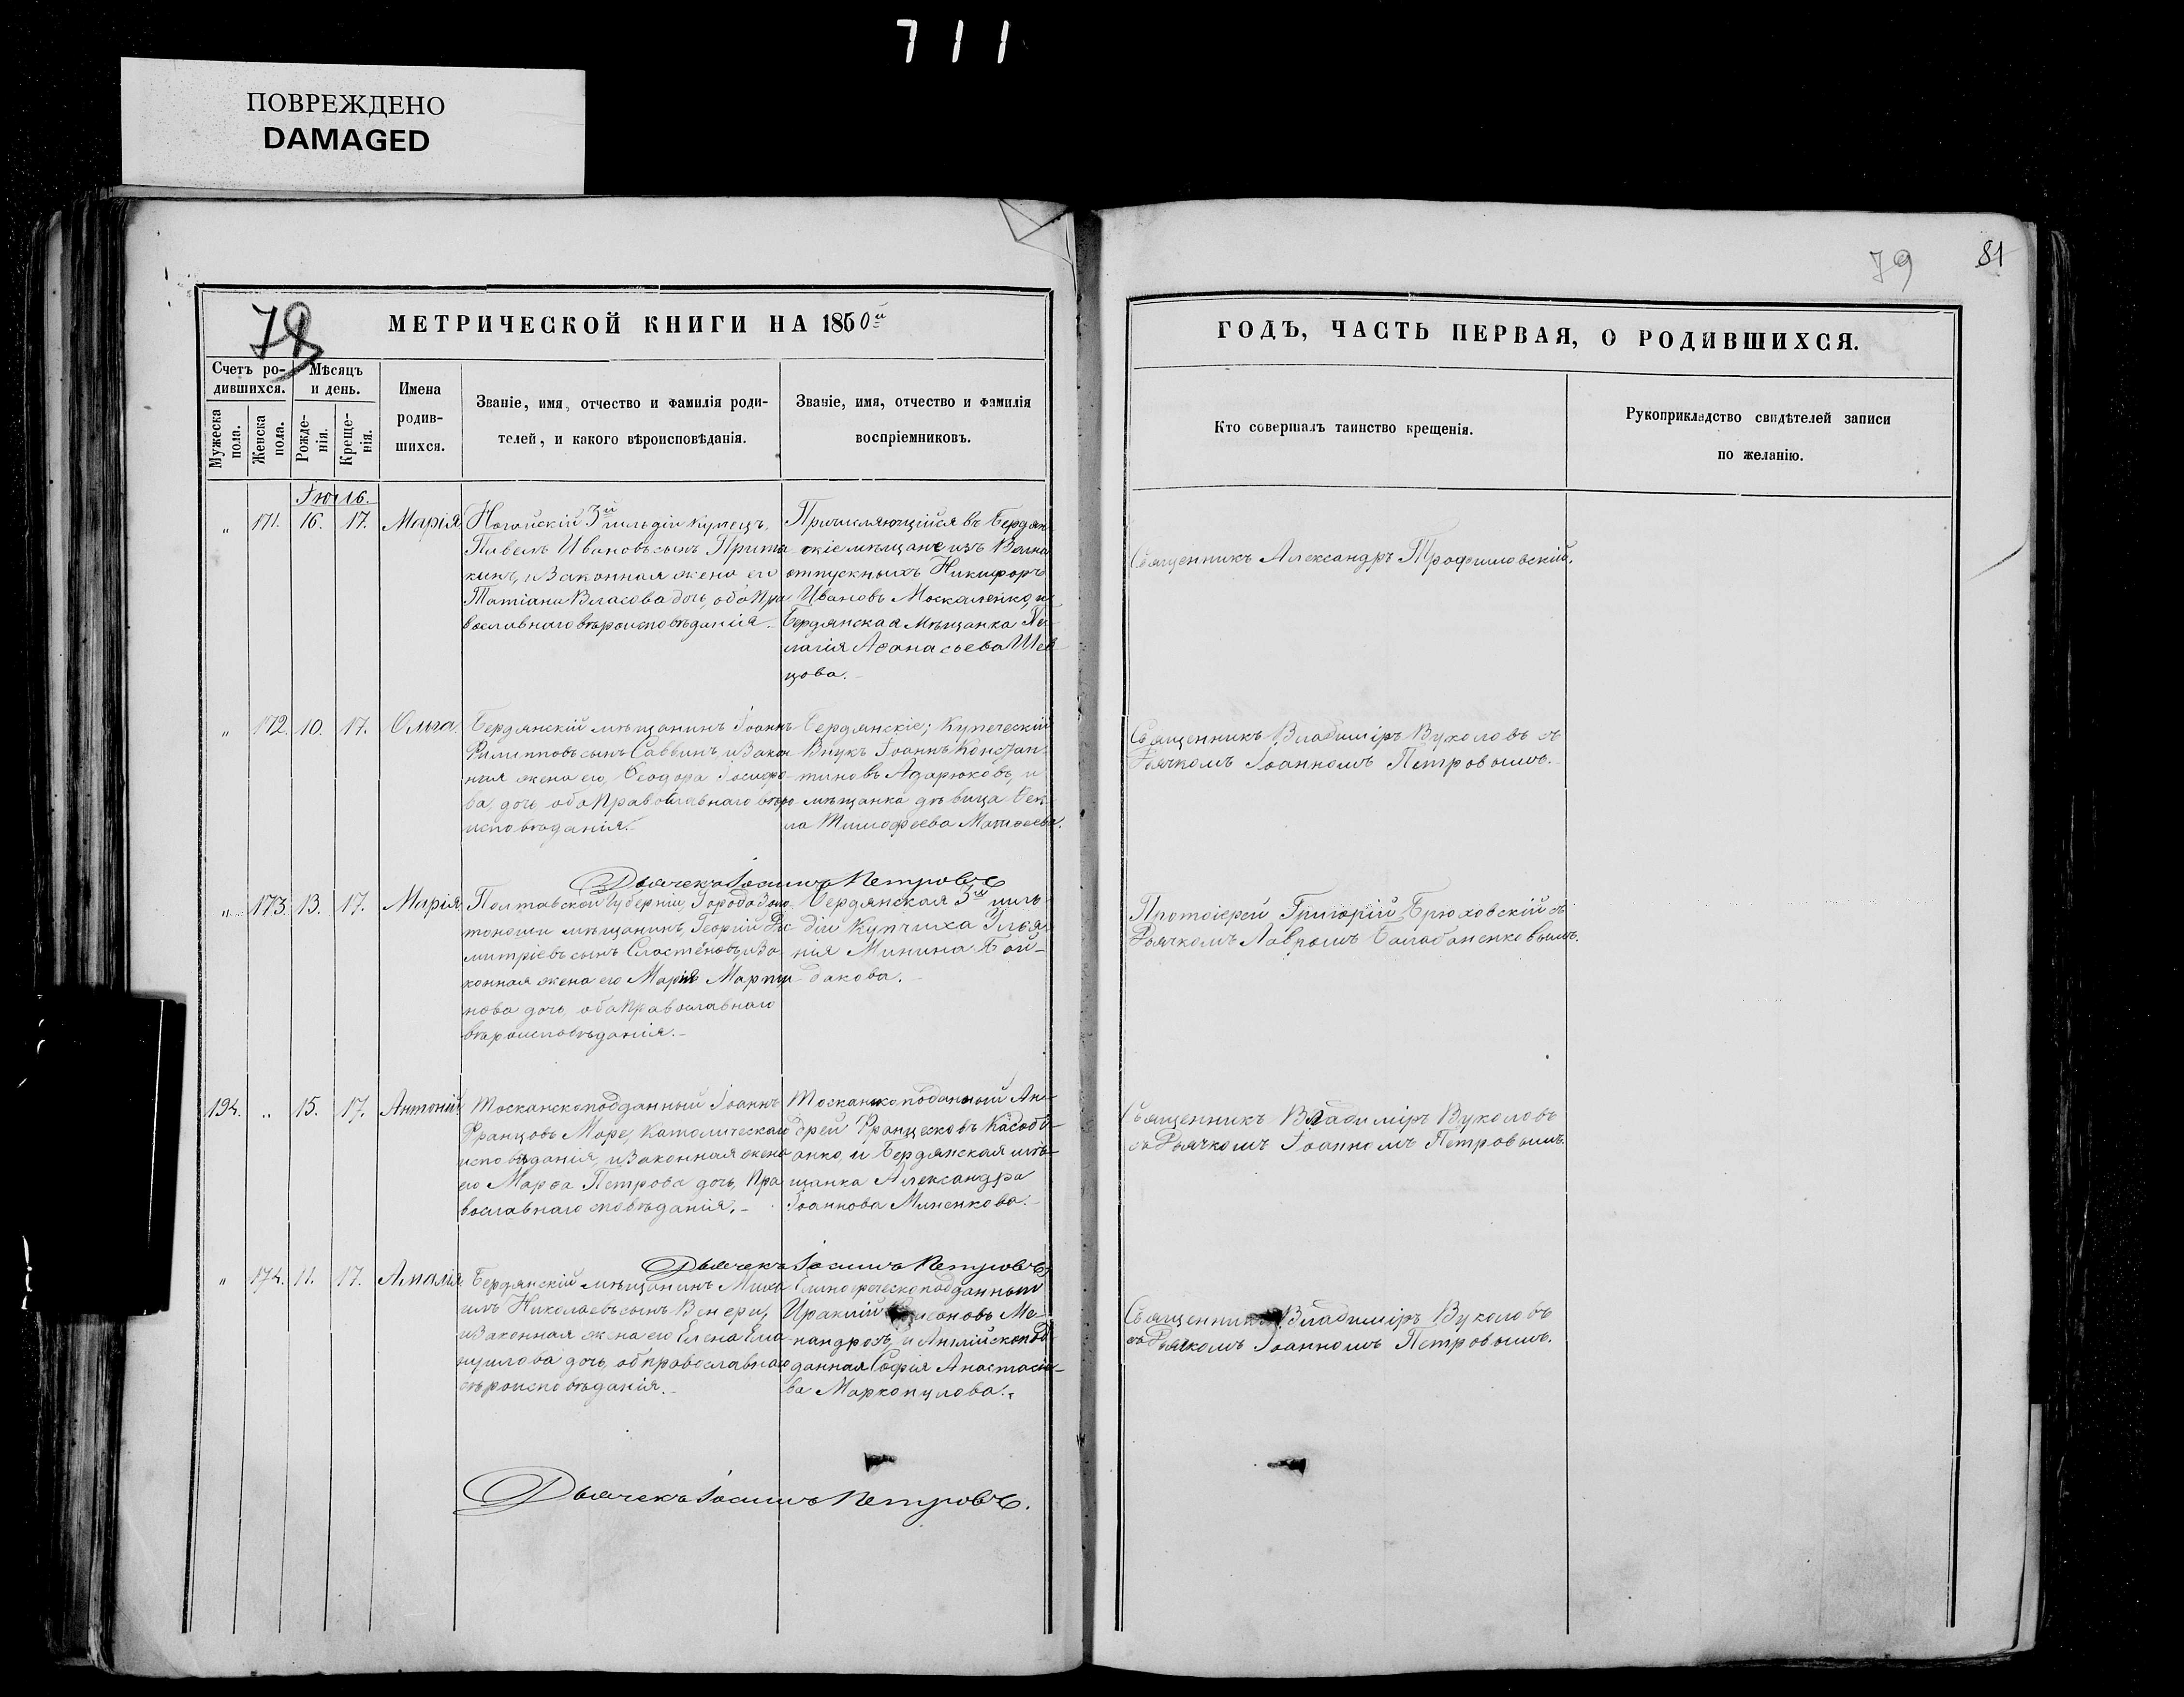 711
ПОВРЕЖДЕНО
DAMAGED
79
81
78
МЕТРИЧЕСКОЙ КНИГИ НА 1860й
ГОДЪ, ЧАСТЬ ПЕРВАЯ, О РОДИВШИХСЯ.
Счетъ ро-
дившихся.
Мѣсяцъ
и день.
Мужеска
пола.
Женска
пола.
Рожде-
нія.
Креще-
нія.
Имена
родив-
шихся.
Званіе, имя, отчество и фамилія роди-
телей, и какого вѣроисповѣданія.
Званіе, имя, отчество и фамилія
воспріемниковъ.
Кто совершалъ таинство крещенія.
Рукоприкладство свидѣтелей записи
по желанію.
Іюль
„ 171. 16. 17. Марія
Ногайскій 3й гильдіи купецъ,
Павелъ Ивановъ сынъ
и законная жена его
Татіана Власова дочь, оба Пра
вославнаго вѣроисповѣданія
Причисляющійся въ Бердян
скіе мѣщане изъ Вольно
отпускныхъ Никифоръ
Ивановъ Москаленко, и
Бердянская Мѣщанка Пе
лагія Аѳанасьева Шев
цова.
Священникъ Александръ Трофимовскій.
„ 172. 10. 17. Ольга.
Бердянскій мѣщанинъ Іоаннъ
Филипповъ сынъ Саввинъ, и Закон
ная жена его, Ѳеодора Іосифо
ва, дочь оба Православнаго вѣро
исповѣданія.
Бердянскіе; Купеческій
Внукъ Іоаннъ Констан
тиновъ Адарюковъ, и
мѣщанка дѣвица Ѳек
ла Тимофѣева Матвеева.
Священникъ Владиміръ Вуколовъ съ
Дьячкомъ Іоанномъ Петровымъ.
Дьячекъ Іоаннъ Петровъ
„ 173. 13. 17. Марія.
Полтавской Губерніи, Города Золо
тоноши мѣщанинъ, Георгій Ди
митріевъ сынъ Сластёновъ, и За
конная жена его Марія Марти
нова дочь оба Православнаго
вѣроисповѣданія.
Бердянская 3й гиль
діи Купчиха Ульяя
нія Минина Бой-
дакова.
Протоіерей Григорій Брюховскій съ
Дьячкомъ Лавромъ Балабаненковымъ.
194. „ 15. 17. Антоній
Тосканскоподданный Іоаннъ
Францовъ Море, Католическаго
исповѣданія, и Законная жена
его Марѳа Петрова дочь, Пра
вославнаго исповѣданія.
Тосканскоподданый Ан-
дрей Францесковъ
и Бердянская мѣ-
щанка Александра
Іоаннова Миненкова.
Священникъ Владиміръ Вуколовъ
съ Дьячкомъ Іоанномъ Петровымъ.
Дьячекъ Іоаннъ Петровъ
„ 174. 11. 17. Амалія
Бердянскій мѣщанинъ Миха
илъ Николаевъ сынъ Венери,
и Законная жена его Елена Ема
нуилова дочь, об православнаго
вѣроисповѣданія.
Еллиногреческоподданный
Ираклій Ме-
нандросъ, и Англійскопод
данная Софія Анастасіе-
ва Маркопулова.
Священникъ Владиміръ Вуколовъ
съ Дьячкомъ Іоанномъ Петровымъ.
Дьячекъ Іоаннъ Петровъ.